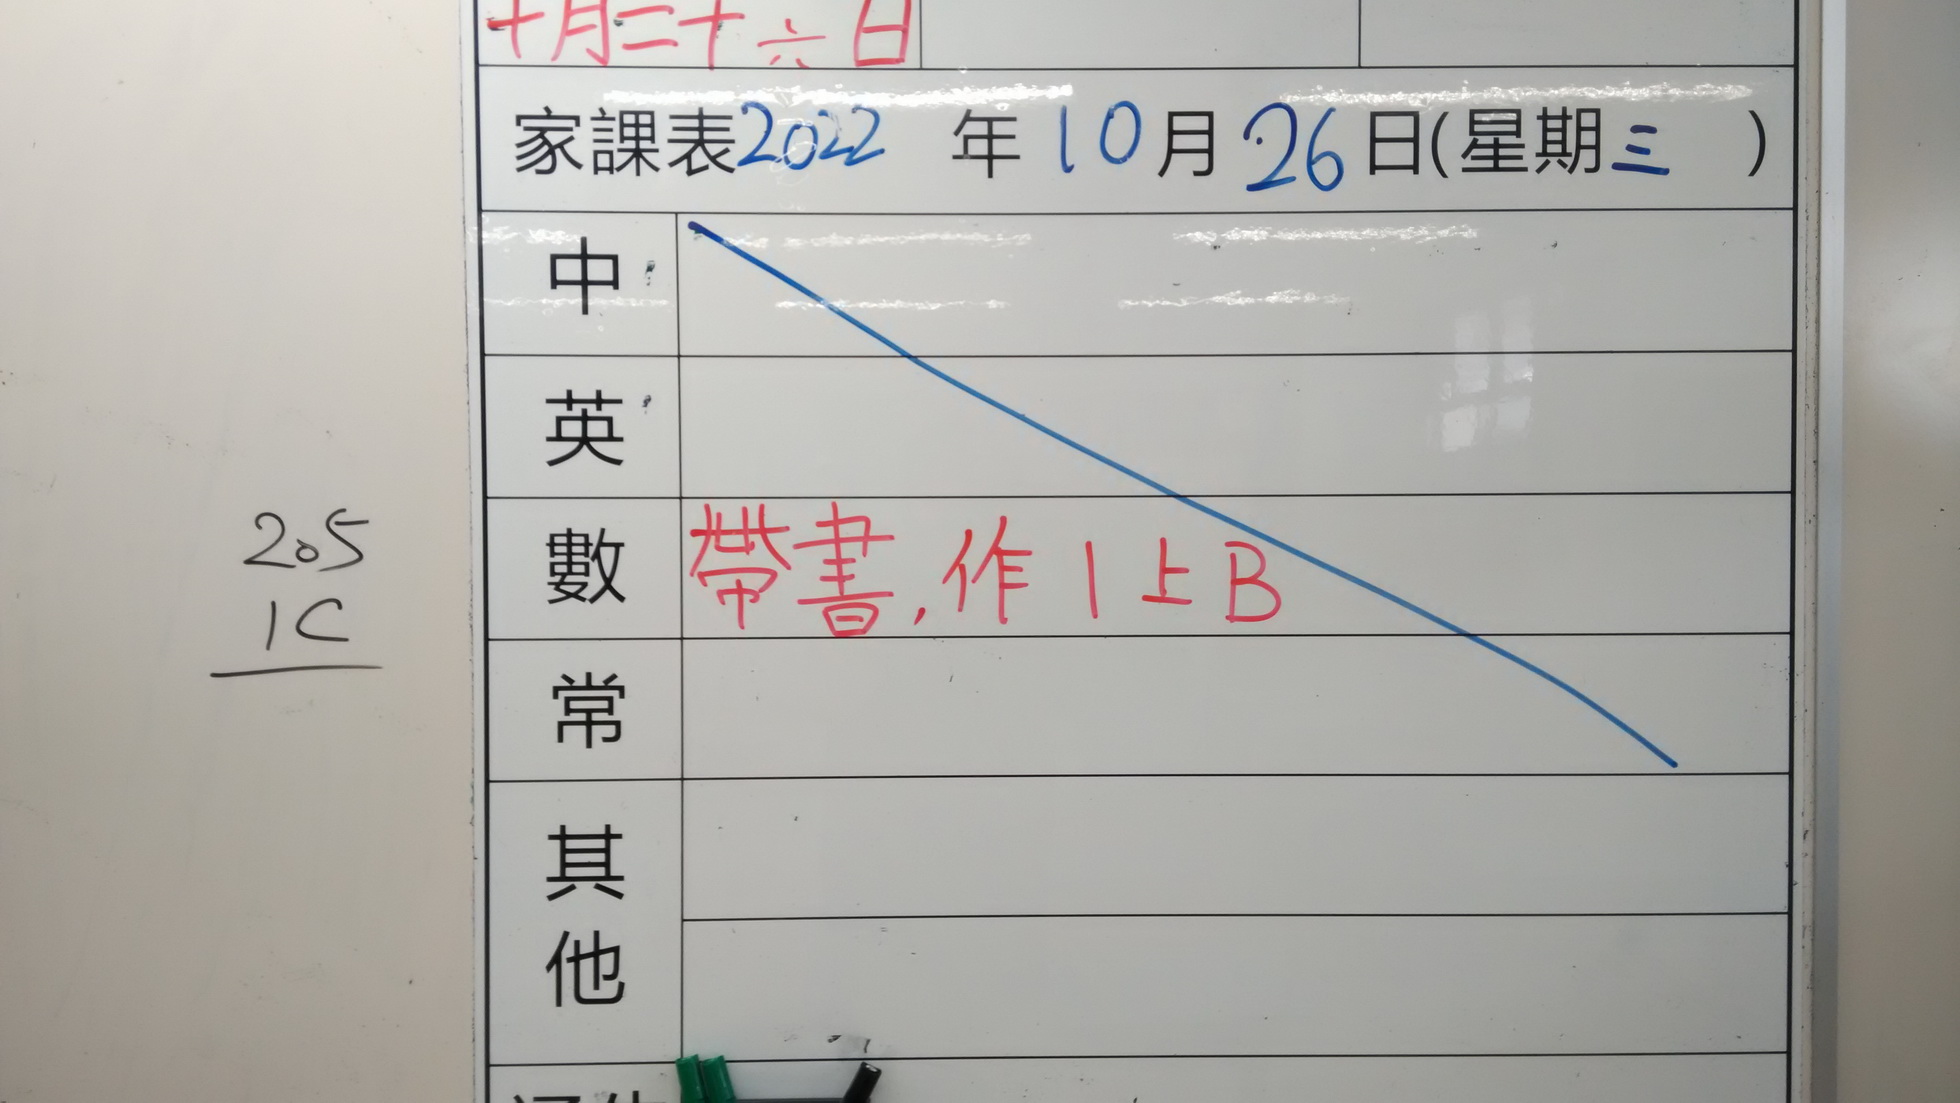 十月二十六日
家課表2022年10月26日(星期三)
中
英
數 帶書,作1上B
常
其他
205
1C